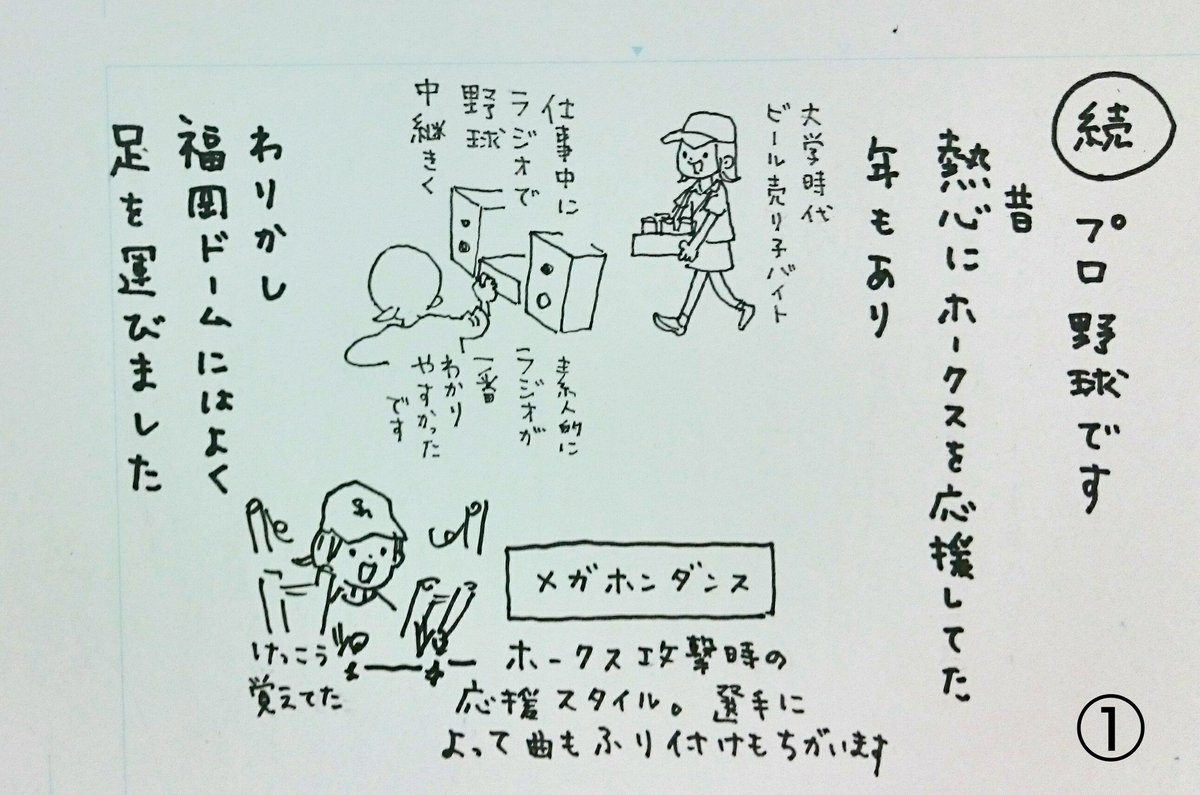 続
プロ野球です
昔
熱心にホークスを応援してた
年もあり
大学時代
ビール売り子バイト
仕事中に
ラジオで
野球
中継きく
素人的に
ラジオが
一番
わかり
やすかった
です
わりかし
福岡ドームにはよく
足を運びました
メガホンダンス
ホークス攻撃時の
応援スタイル。選手に
よって曲もふり付けもちがいます
けっこう
覚えてた
①